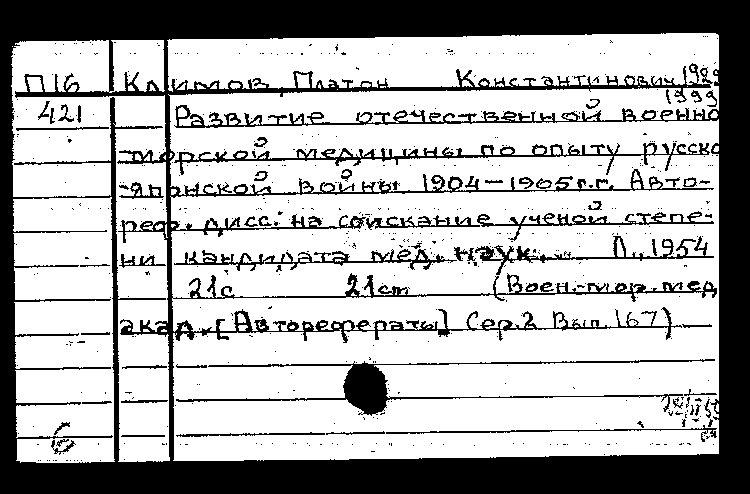 П16 Климов, Платон Константинович, 1929
1999
421 Развитие отечественной военно
-морской медицины по опыту русско
-японской войны 1904-1905 г.г. Авто-
реф. дисс. на соискание ученой степе-
ни кандидата мед. наук. Л., 1954
21с 21cm (Воен.-мор. мед
акад. [Авторефераты] Сер.2 Вып.167)
6